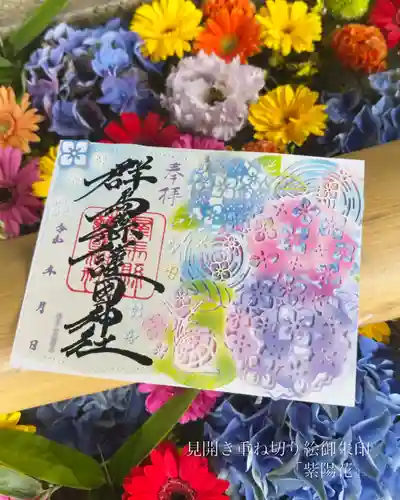 奉拝
群馬縣護國神社
令和 年 月 日
見開き重ね切り絵御朱印
「紫陽花」